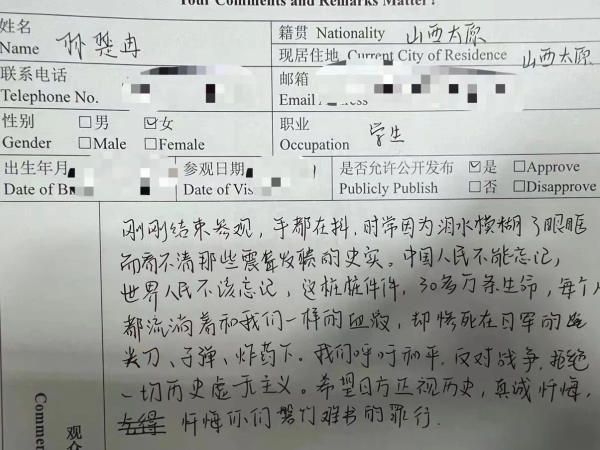 Your Comments and Remarks Matter!
姓名 Name 籍贯 Nationality 山西太原
现居住地 Current City of Residence 山西太原
联系电话 Telephone No. 邮箱 Email
性别 Gender □男 Male ☑女 Female 职业 Occupation 学生
出生年月 Date of 参观日期 Date of 是否允许公开发布 Publicly Publish ☑是 □Approve □否 □Disapprove
刚刚结束参观，手都在抖，时常因为泪水模糊了眼眶
而看不清那些震耸发聩的史实。中国人民不能忘记，
世界人民不该忘记，这桩桩件件，30多万条生命，每个人
都流淌着和我们一样的血液，却惨死在日军的
尖刀、子弹、炸药下。我们呼吁和平，反对战争，拒绝
一切历史虚无主义。希望日方正视历史，真诚忏悔，
忏悔你们罄竹难书的罪行.
观
Comment